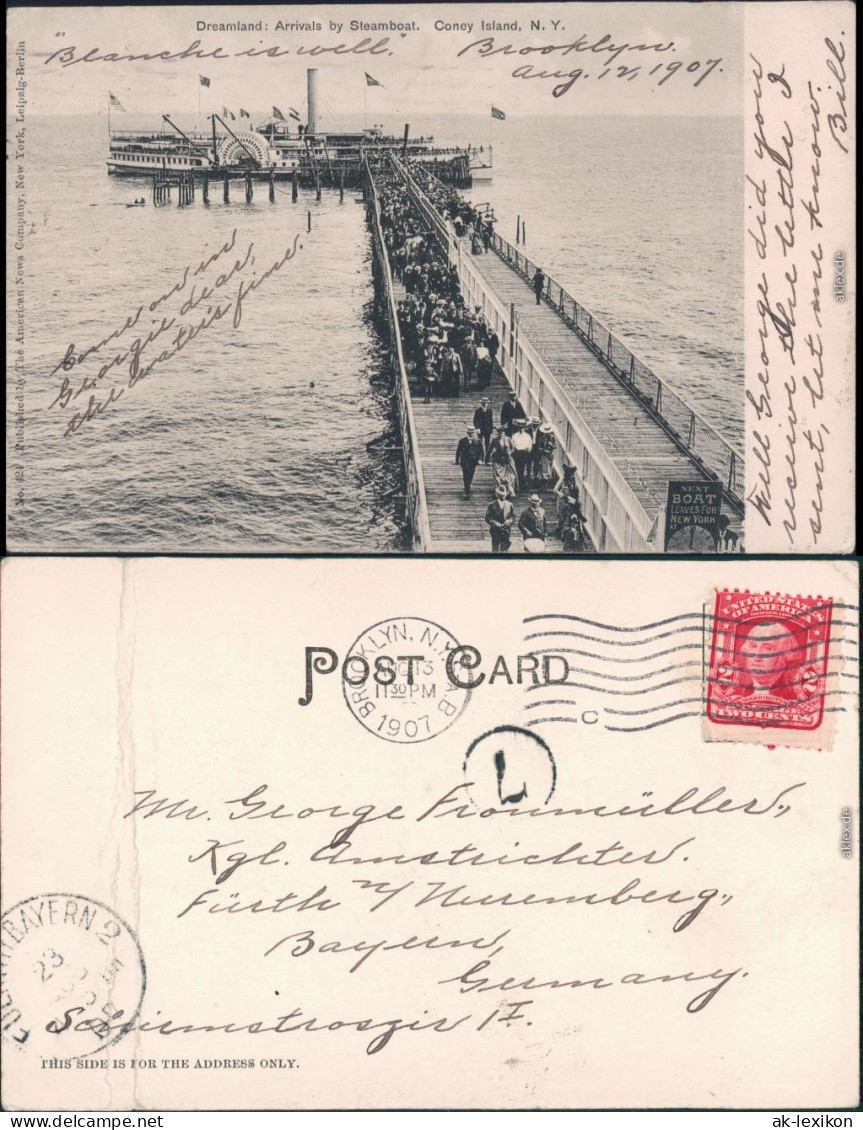 Dreamland: Arrivals by Steamboat. Coney Island, N. Y.
"Blanche is well." Brooklyn.
Aug. 12, 1907.
Come on in
Georgie dear,
the water's fine.
Well George did you
receive the letter I
sent, let me know.
Bill.
No. 421 Published by The American News Company, New York, Leipzig-Berlin
NEXT
BOAT
LEAVES FOR
NEW YORK
AT
aklex.de
POST CARD
BROOKLYN, N.Y.
AUG 13
11 30 PM
1907
C
UNITED STATES
OF AMERICA
2 2
TWO CENTS
7
Mr. George Fronmüller,
Kgl. Amstrichter.
Fürth n/ Nuremberg,
Bayern,
Germany.
FUERTH BAYERN 2
23
THIS SIDE IS FOR THE ADDRESS ONLY.
aklex.de
www.ak-lexikon.de
ak-lexikon